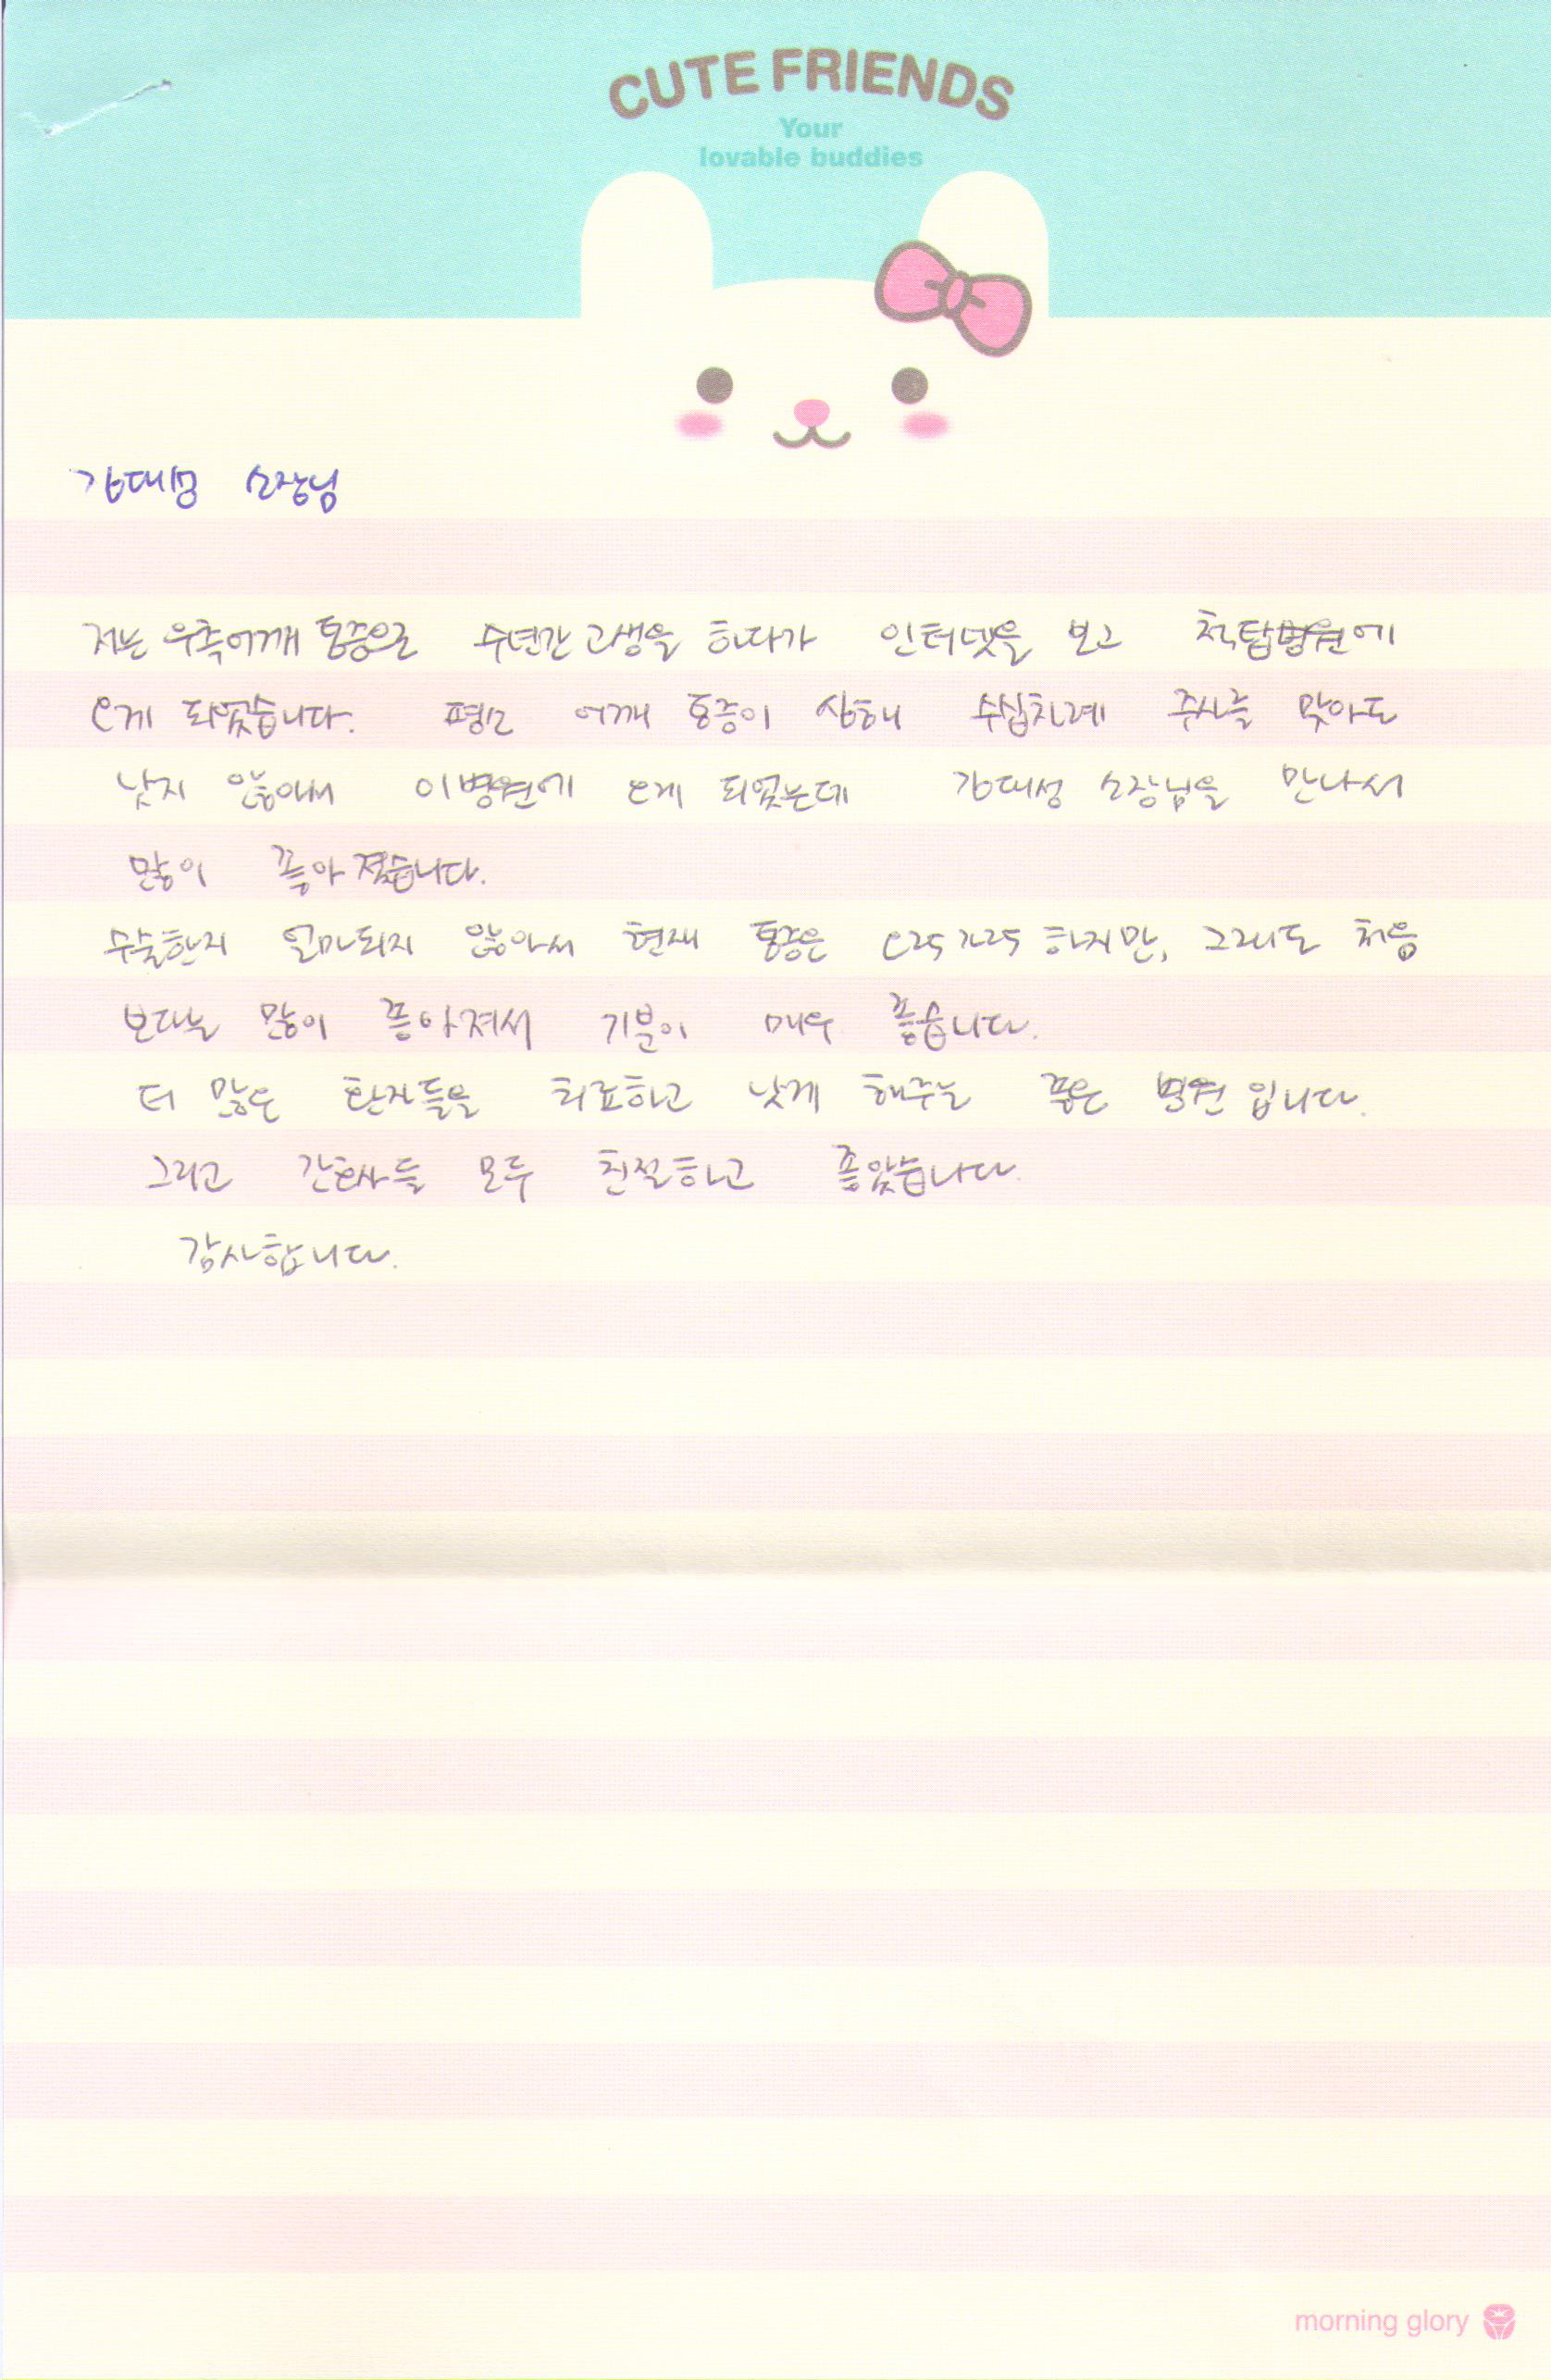 CUTE FRIENDS
Your
lovable buddies
김대성 소장님
저는 우측어깨 통증으로 수년간 고생을 하다가 인터넷을 보고 척탑병원에
오게 되었습니다. 평소 어깨 통증이 심해 수십차례 주사를 맞아도
낫지 않아서 이병원에 오게 되었는데 김대성 소장님을 만나서
많이 좋아 졌습니다.
수술한지 얼마되지 않아서 현재 통증은 오락가락 하지만, 그래도 처음
보다는 많이 좋아져서 기분이 매우 좋습니다.
더 많은 환자들을 치료하고 낫게 해주는 좋은 병원 입니다.
그리고 간호사들 모두 친절하고 좋았습니다.
감사합니다.
morning glory